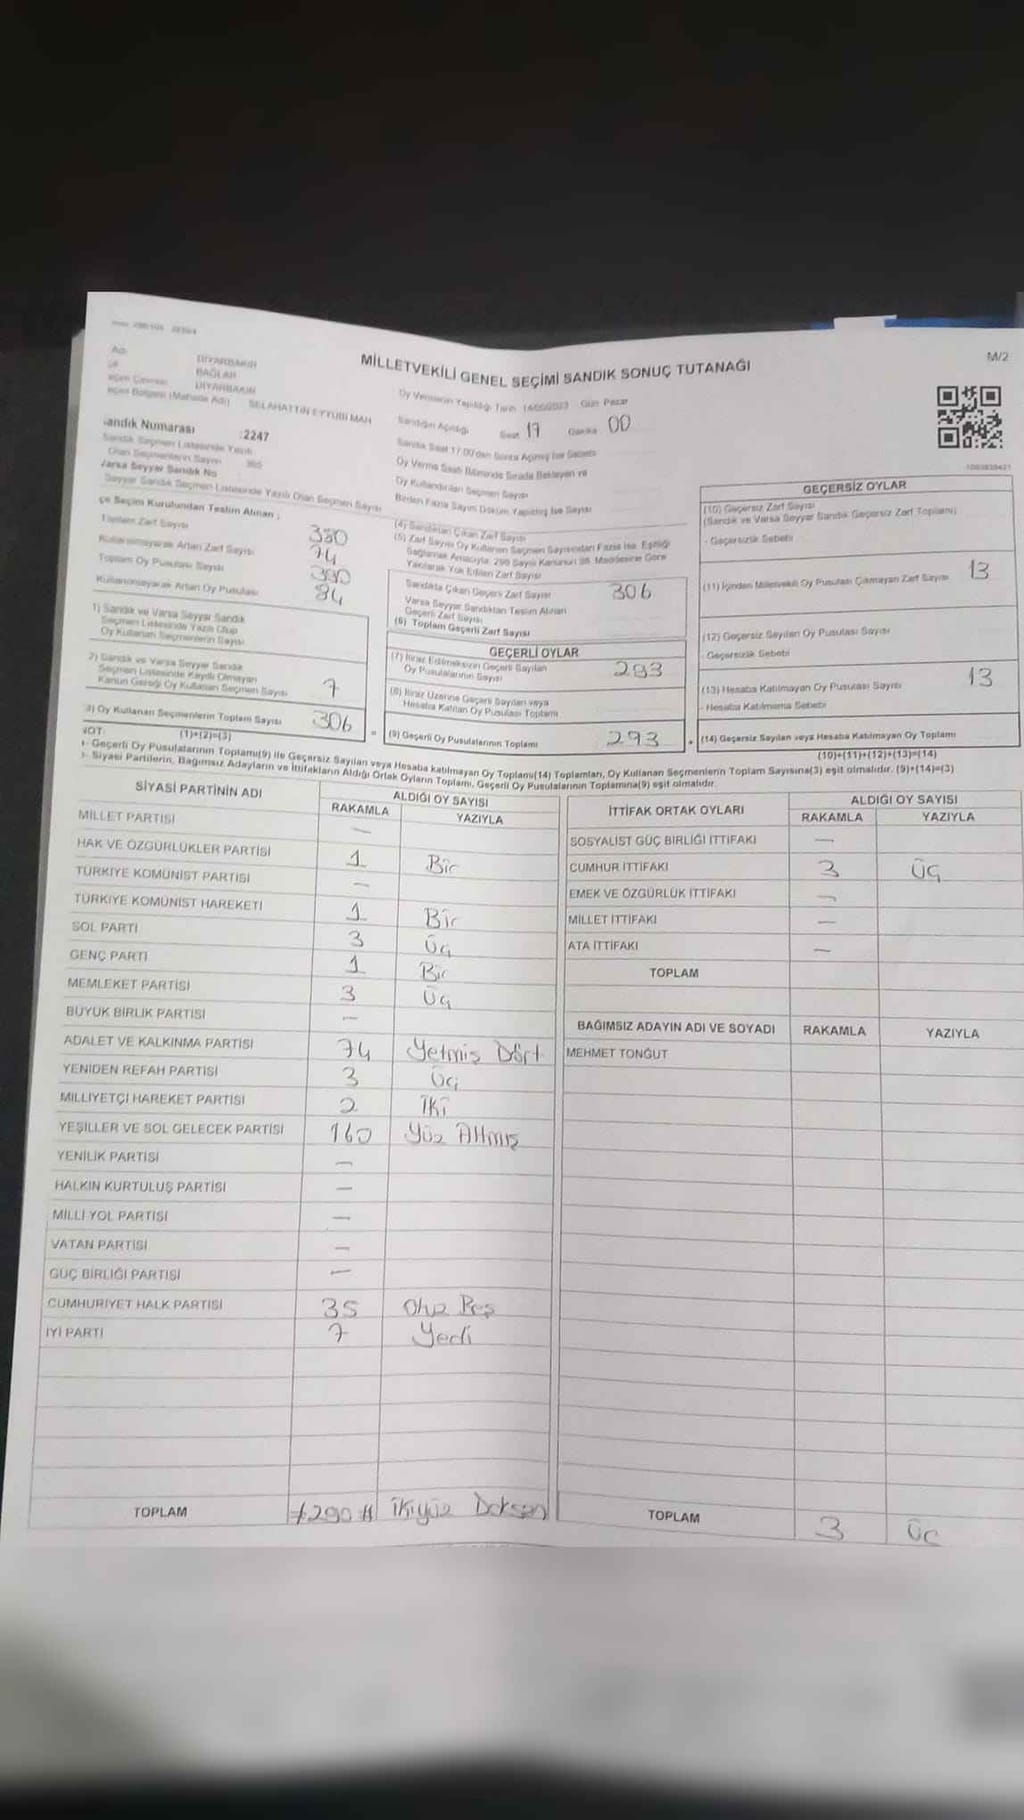 DİYARBAKIR
BAĞLAR
DİYARBAKIR
SELAHATTİN EYYUBİ MAH
MİLLETVEKİLİ GENEL SEÇİMİ SANDIK SONUÇ TUTANAĞI
M/2
Gün Pazar
Saat 17 Dakika 00
Sandık Numarası :2247
Sandık Seçmen Listesinde Yazılı
Olan Seçmenlerin Sayısı
Varsa Seyyar Sandık No
Seyyar Sandık Seçmen Listesinde Yazılı Olan Seçmen Sayısı
Sandık Saat 17:00'dan Sonra Açılmış İse Sebebi
Oy Verme Saati Bitiminde Sırada Bekleyen ve
Oy Kullandırılan Seçmen Sayısı
Birden Fazla Sayım Döküm Yapılmış İse Sayısı
İlçe Seçim Kurulundan Teslim Alınan ;
Toplam Zarf Sayısı 380
Kullanılmayarak Artan Zarf Sayısı 74
Toplam Oy Pusulası Sayısı
Kullanılmayarak Artan Oy Pusulası
1) Sandık ve Varsa Seyyar Sandık
Seçmen Listesinde Yazılı Olup
Oy Kullanan Seçmenlerin Sayısı
2) Sandık ve Varsa Seyyar Sandık
Seçmen Listesinde Kayıtlı Olmayan
Kanun Gereği Oy Kullanan Seçmen Sayısı 7
3) Oy Kullanan Seçmenlerin Toplam Sayısı 306
(1)+(2)=(3)
(4) Sandıktan Çıkan Zarf Sayısı
(5) Zarf Sayısı Oy Kullanan Seçmen Sayısından Fazla İse, Eşitliği
Sağlamak Amacıyla, 298 Sayılı Kanunun 98. Maddesine Göre
Yakılarak Yok Edilen Zarf Sayısı
Sandıkta Çıkan Geçerli Zarf Sayısı 306
Varsa Seyyar Sandıktan Teslim Alınan
Geçerli Zarf Sayısı
(6) Toplam Geçerli Zarf Sayısı
GEÇERLİ OYLAR
(7) İtiraz Edilmeksizin Geçerli Sayılan
Oy Pusulalarının Sayısı 293
(8) İtiraz Üzerine Geçerli Sayılan veya
Hesaba Katılan Oy Pusulası Toplamı
= (9) Geçerli Oy Pusulalarının Toplamı 293 +
GEÇERSİZ OYLAR
(10) Geçersiz Zarf Sayısı
(Sandık ve Varsa Seyyar Sandık Geçersiz Zarf Toplamı)
- Geçersizlik Sebebi
(11) İçinden Milletvekili Oy Pusulası Çıkmayan Zarf Sayısı 13
(12) Geçersiz Sayılan Oy Pusulası Sayısı
- Geçersizlik Sebebi
(13) Hesaba Katılmayan Oy Pusulası Sayısı 13
- Hesaba Katılmama Sebebi
(14) Geçersiz Sayılan veya Hesaba Katılmayan Oy Toplamı
(10)+(11)+(12)+(13)=(14)
NOT:
- Geçerli Oy Pusulalarının Toplamı(9) ile Geçersiz Sayılan veya Hesaba katılmayan Oy Toplamı(14) Toplamları, Oy Kullanan Seçmenlerin Toplam Sayısına(3) eşit olmalıdır. (9)+(14)=(3)
- Siyasi Partilerin, Bağımsız Adayların ve İttifakların Aldığı Ortak Oyların Toplamı, Geçerli Oy Pusulalarının Toplamına(9) eşit olmalıdır.
SİYASİ PARTİNİN ADI
ALDIĞI OY SAYISI
RAKAMLA YAZIYLA
MİLLET PARTİSİ —
HAK VE ÖZGÜRLÜKLER PARTİSİ 1 Bir
TÜRKİYE KOMÜNİST PARTİSİ —
TÜRKİYE KOMÜNİST HAREKETİ 1 Bir
SOL PARTİ 3 Üç
GENÇ PARTİ 1 Bir
MEMLEKET PARTİSİ 3 Üç
BÜYÜK BİRLİK PARTİSİ —
ADALET VE KALKINMA PARTİSİ 74 Yetmiş Dört
YENİDEN REFAH PARTİSİ 3 Üç
MİLLİYETÇİ HAREKET PARTİSİ 2 İki
YEŞİLLER VE SOL GELECEK PARTİSİ 160 Yüz Altmış
YENİLİK PARTİSİ —
HALKIN KURTULUŞ PARTİSİ —
MİLLİ YOL PARTİSİ —
VATAN PARTİSİ —
GÜÇ BİRLİĞİ PARTİSİ —
CUMHURİYET HALK PARTİSİ 35 Otuz Beş
İYİ PARTİ 7 Yedi
TOPLAM #290# İkiyüz Doksan
İTTİFAK ORTAK OYLARI
ALDIĞI OY SAYISI
RAKAMLA YAZIYLA
SOSYALİST GÜÇ BİRLİĞİ İTTİFAKI —
CUMHUR İTTİFAKI 3 ÜÇ
EMEK VE ÖZGÜRLÜK İTTİFAKI —
MİLLET İTTİFAKI —
ATA İTTİFAKI —
TOPLAM
BAĞIMSIZ ADAYIN ADI VE SOYADI RAKAMLA YAZIYLA
MEHMET TONĞUT
TOPLAM 3 ÜÇ